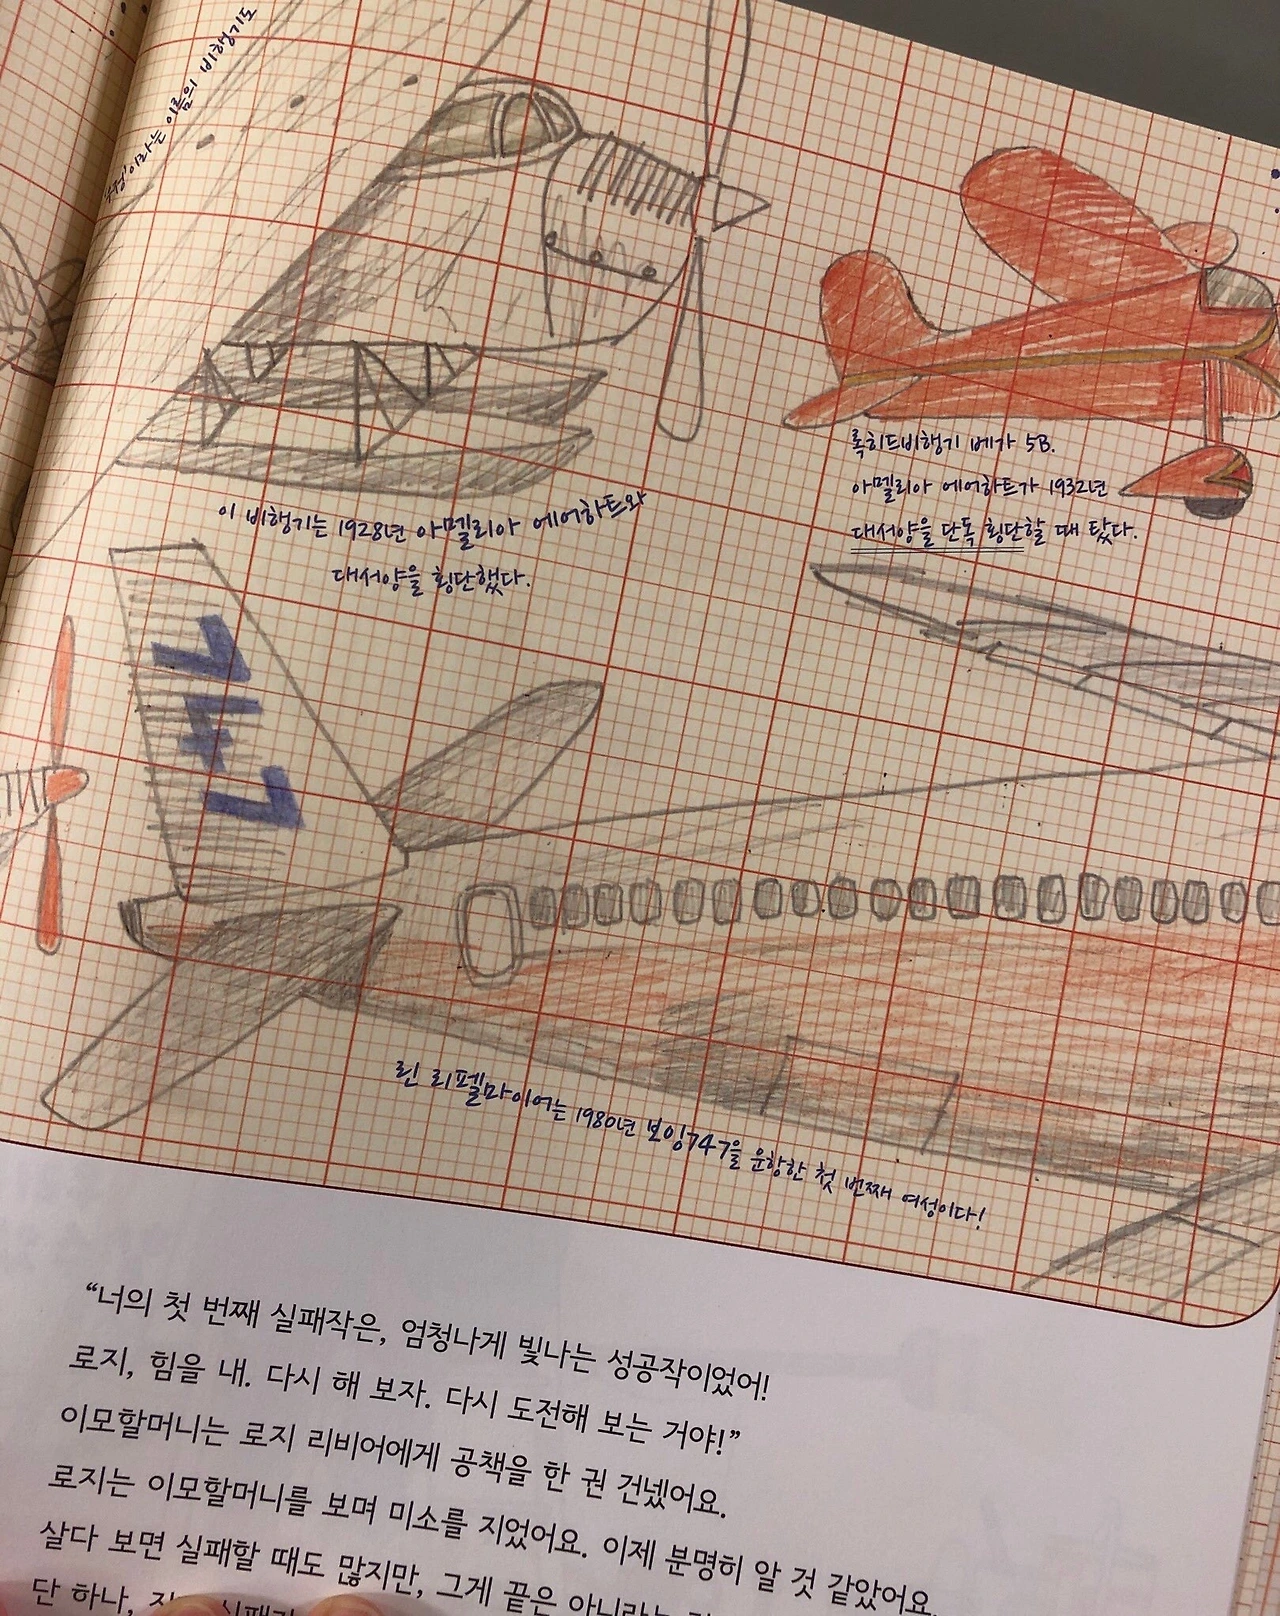 이라는 이름의 비행기도
이 비행기는 1928년 아멜리아 에어하트와
대서양을 횡단했다.
록히드비행기 베가 5B.
아멜리아 에어하트가 1932년
대서양을 단독 횡단할 때 탔다.
747
린 리펠마이어는 1980년 보잉747을 운항한 첫 번째 여성이다!
“너의 첫 번째 실패작은, 엄청나게 빛나는 성공작이었어!
로지, 힘을 내. 다시 해 보자. 다시 도전해 보는 거야!”
이모할머니는 로지 리비어에게 공책을 한 권 건넸어요.
로지는 이모할머니를 보며 미소를 지었어요. 이제 분명히 알 것 같았어요.
살다 보면 실패할 때도 많지만, 그게 끝은 아니라는
단 하나,